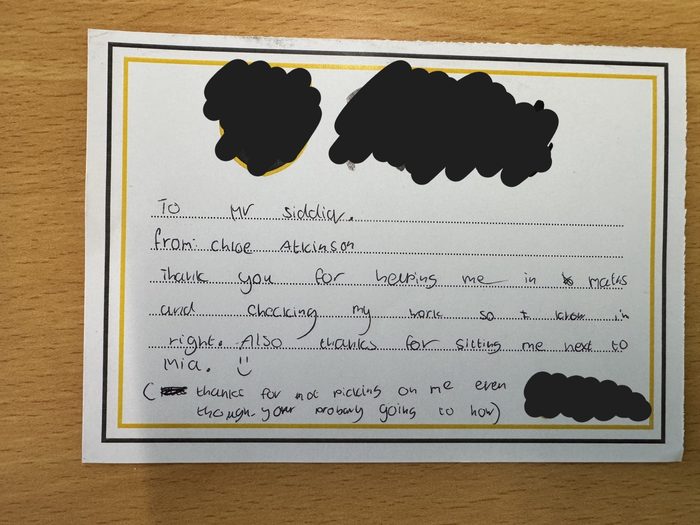 To Mr Siddiq.
from: Chloe Atkinson
Thank you for helping me in maths
and checking my work so I know im
right. Also thanks for sitting me next to
Mia. :)
( thanks for not picking on me even
though your probably going to now)